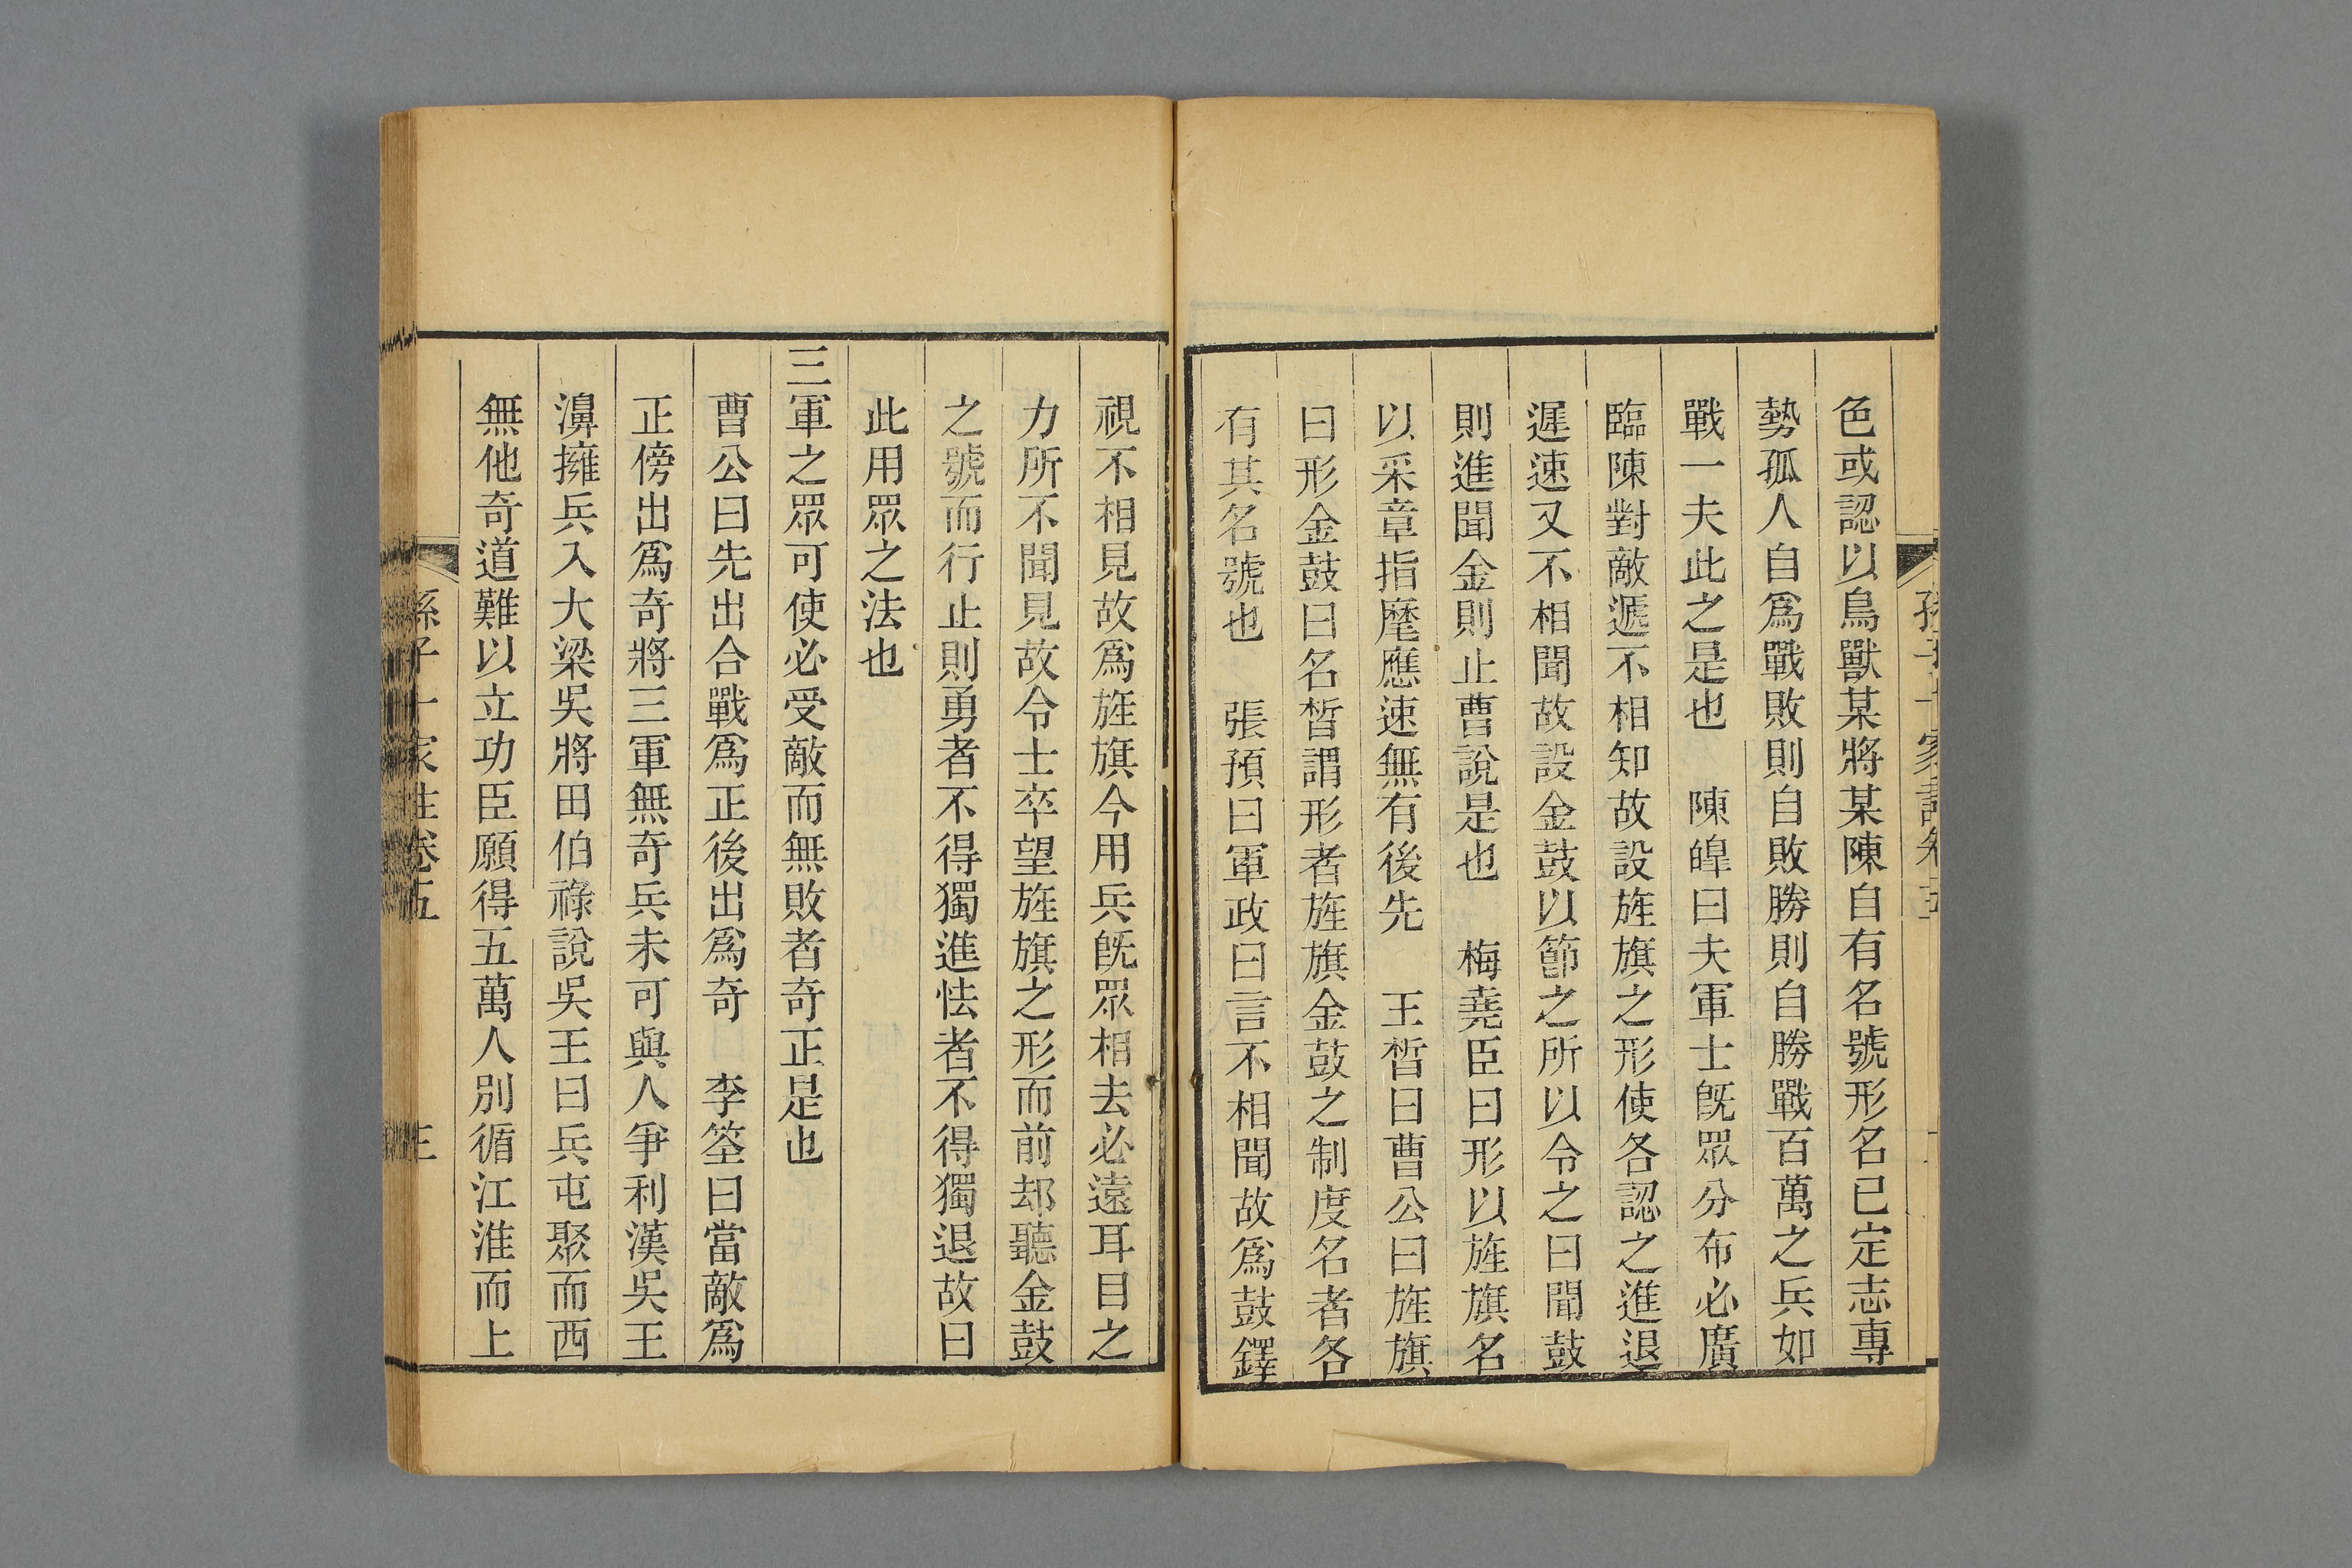 色或認以鳥獸某將某陳自有名號形名已定志專
勢孤人自爲戰敗則自敗勝則自勝戰百萬之兵如
戰一夫此之是也　陳皡曰夫軍士旣眾分布必廣
臨陳對敵遞不相知故設旌旗之形使各認之進退
遲速又不相聞故設金鼓以節之所以令之曰聞鼓
則進聞金則止曹說是也　梅堯臣曰形以旌旗名
以采章指麾應速無有後先　王晳曰曹公曰旌旗
曰形金鼓曰名晳謂形者旌旗金鼓之制度名者各
有其名號也　張預曰軍政曰言不相聞故爲鼓鐸
視不相見故爲旌旗今用兵旣眾相去必遠耳目之
力所不聞見故令士卒望旌旗之形而前却聽金鼓
之號而行止則勇者不得獨進怯者不得獨退故曰
此用眾之法也
三軍之眾可使必受敵而無敗者奇正是也
曹公曰先出合戰爲正後出爲奇　李筌曰當敵爲
正傍出爲奇將三軍無奇兵未可與人爭利漢吳王
濞擁兵入大梁吳將田伯祿說吳王曰兵屯聚而西
無他奇道難以立功臣願得五萬人別循江淮而上
孫子十家注卷五